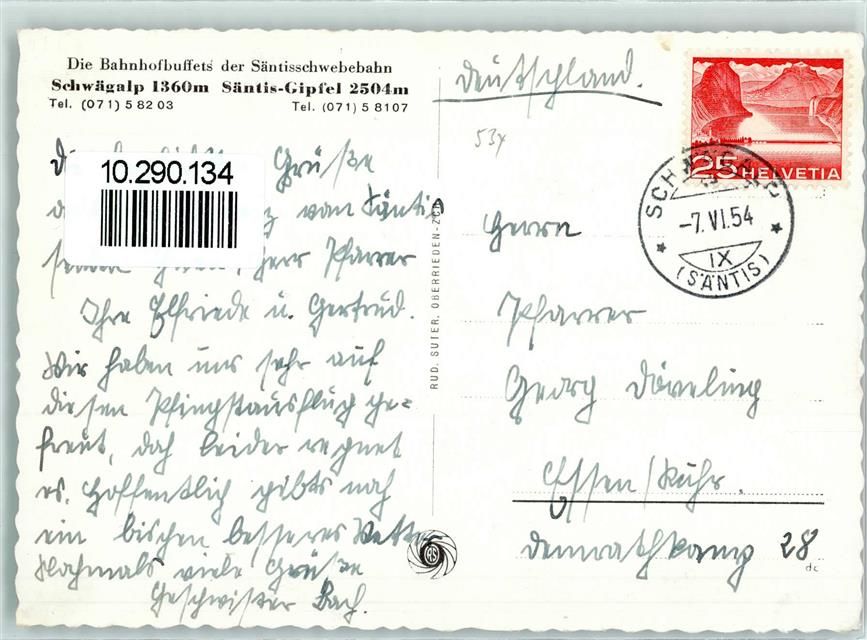 Die Bahnhofbuffets der Säntisschwebebahn
Schwägalp 1360m Säntis-Gipfel 2504m
Tel. (071) 5 82 03 Tel. (071) 5 8107
Grüße
10.290.134
vom Säntis
Herr Pfarrer
Ihre Elfriede u. Gertrud.
Wir haben uns sehr auf
diesen Pfingstausflug ge=
freut, doch leider regnet
es. Hoffentlich gibts noch
ein bischen besseres Wetter
Nochmals viele Grüße
Geschwister Bach.
RUD. SUTER, OBERRIEDEN-ZCH
Deutschland.
53x
25 HELVETIA
SCHWÄGALP
-7.VI.54
IX
(SÄNTIS)
Herrn
Pfarrer
Georg Döveling
Essen/Ruhr.
28
dc